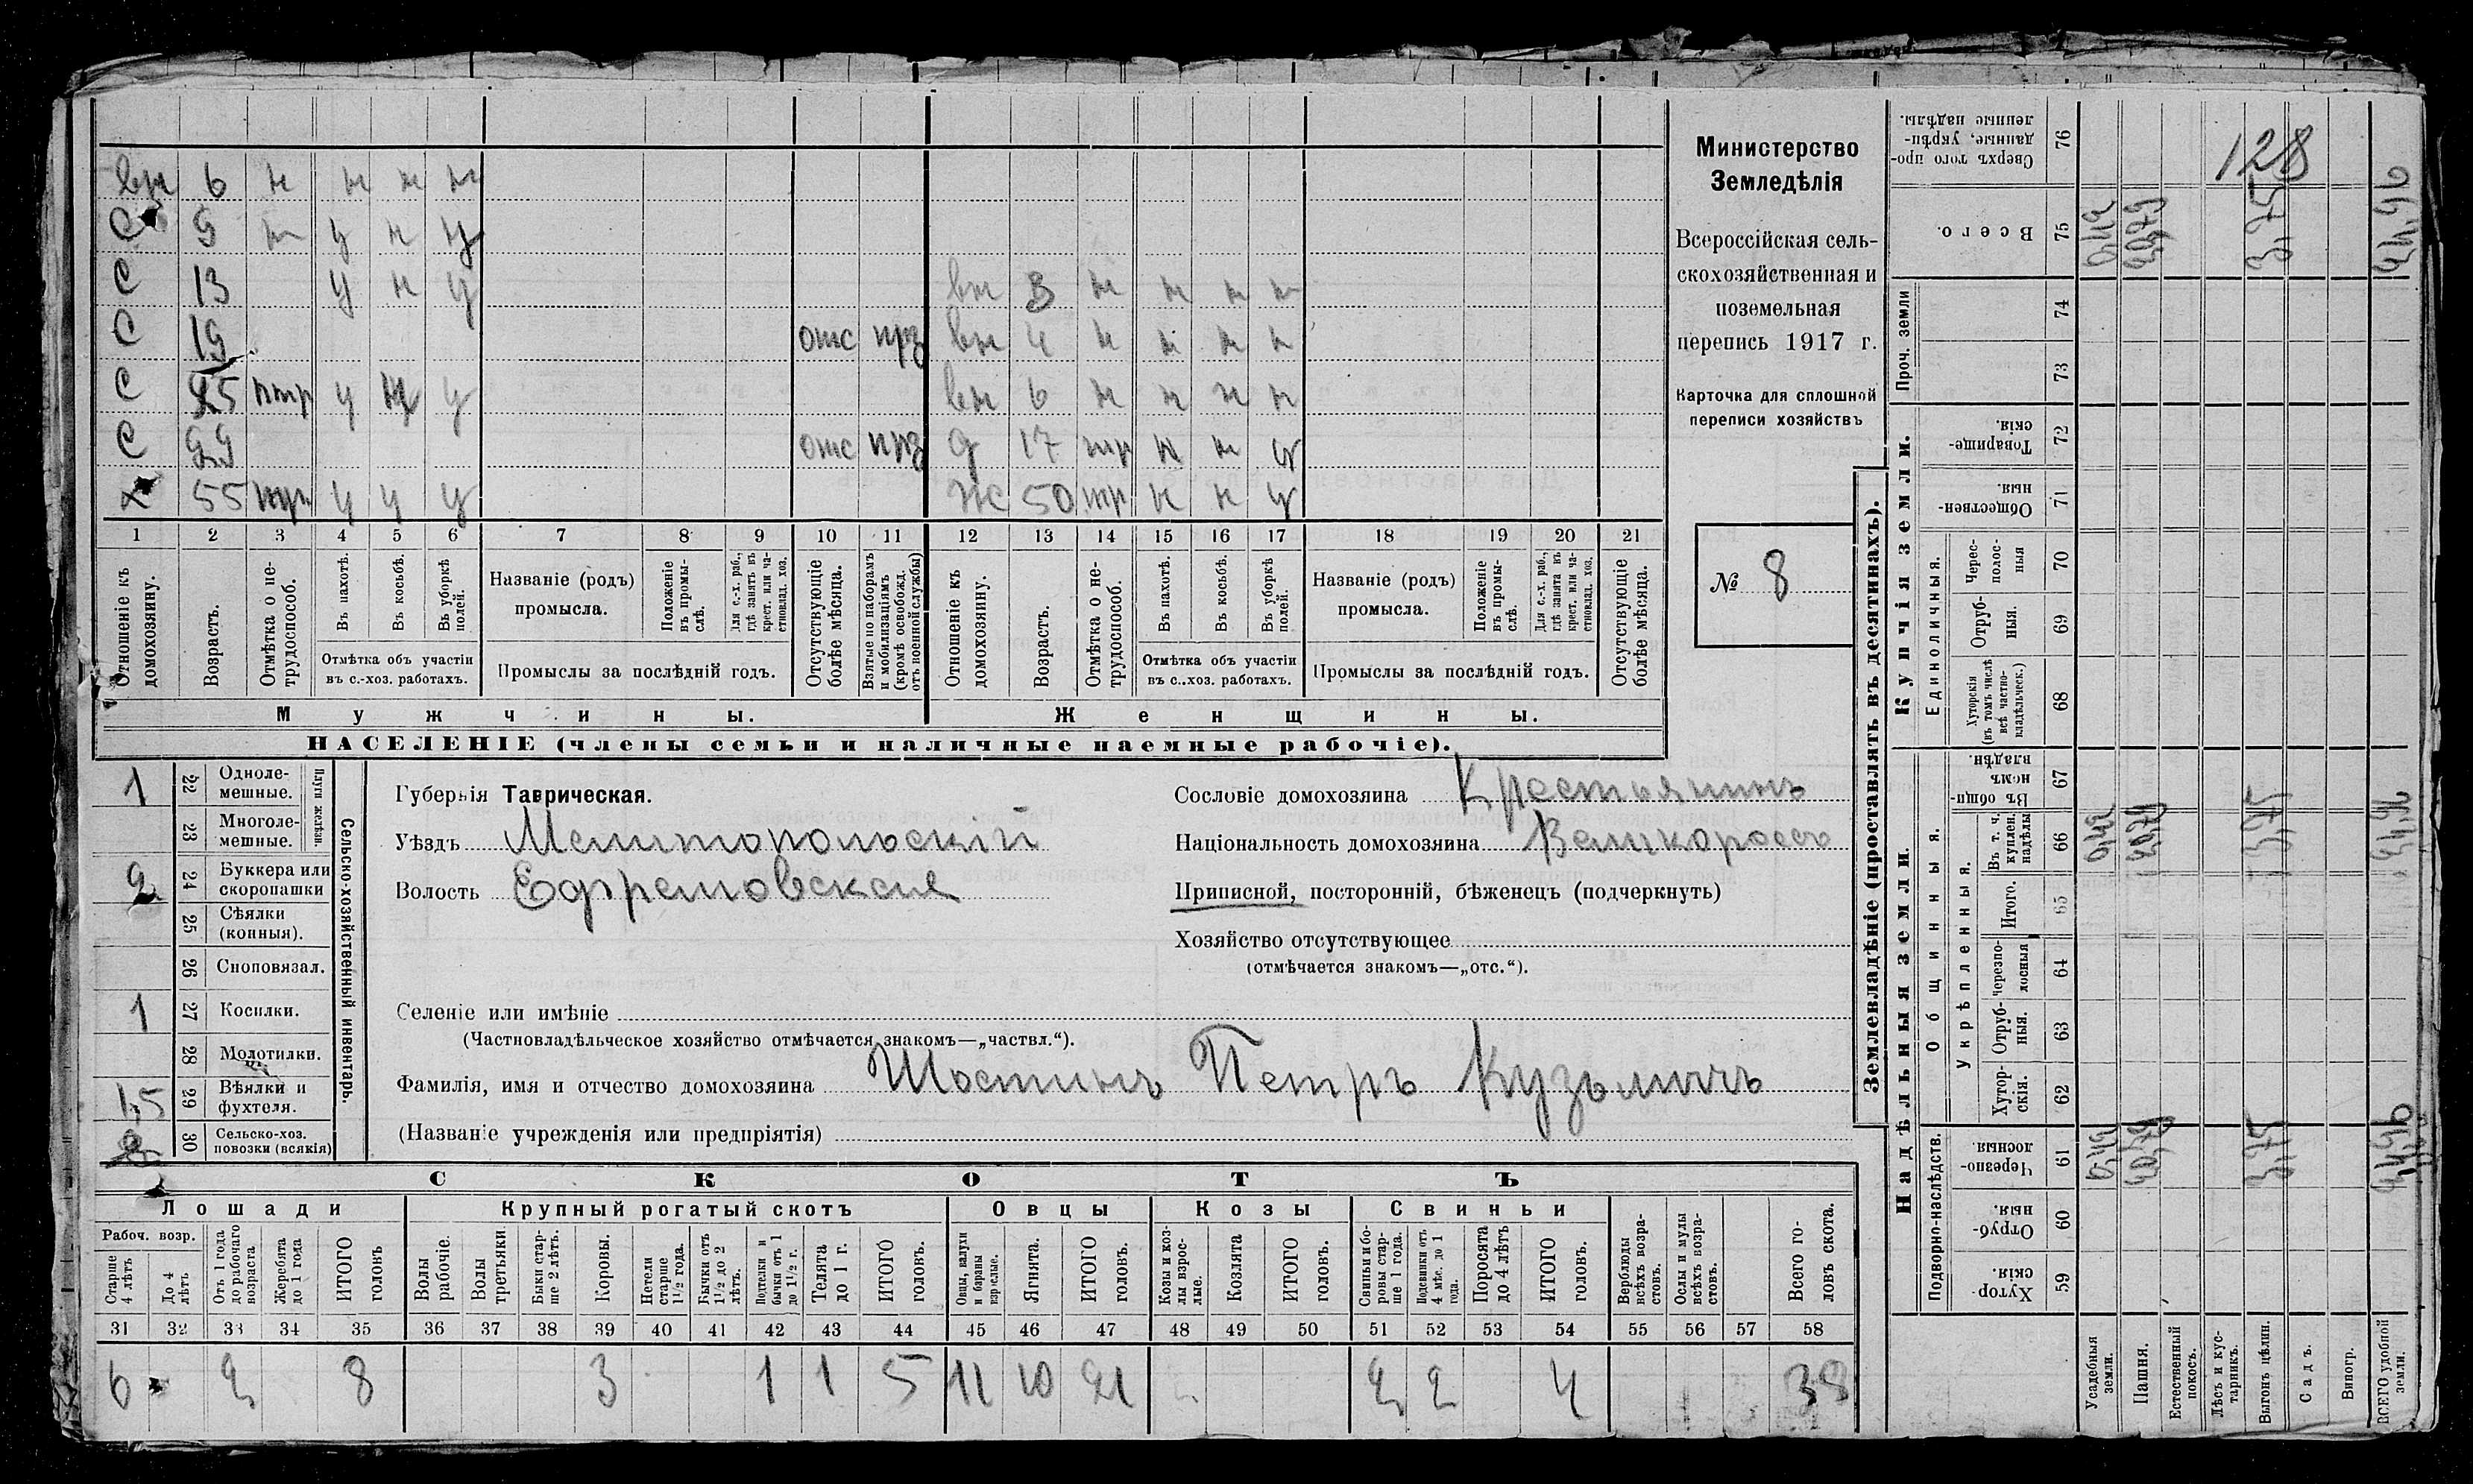 вн 6 н н н н
С 9 н у н у
С 13 у н у вн 3 н н н н
С 19 отс прз вн 4 н н н н
С 25 птр у у вн 6 н н н н
С 29 отс прз д 17 тр н н у
Х 55 тр у у у ж 50 тр н н у
1 2 3 4 5 6 7 8 9 10 11 12 13 14 15 16 17 18 19 20 21
Отношеніе къ домохозяину.
Возрастъ.
Отмѣтка о не-трудоспособ.
Въ пахотѣ.
Въ косьбѣ.
Въ уборкѣ полей.
Отмѣтка объ участіи
въ с.-хоз. работахъ.
Названіе (родъ)
промысла.
Положеніе въ промы-слѣ.
Для с.-х. раб., гдѣ занятъ въ крест. или ча-стновлад. хоз.
Промыслы за послѣдній годъ.
Отсутствующіе болѣе мѣсяца.
Взятые по наборамъ и мобилизаціямъ (кромѣ освобожд. отъ военной службы)
Отношеніе къ домохозяину.
Возрастъ.
Отмѣтка о не-трудоспособ.
Въ пахотѣ.
Въ косьбѣ.
Въ уборкѣ полей.
Отмѣтка объ участіи
въ с..хоз. работахъ.
Названіе (родъ)
промысла.
Положеніе въ промы-слѣ.
Для с.-х. раб., гдѣ занята въ крест. или ча-стновлад. хоз.
Промыслы за послѣдній годъ.
Отсутствующіе болѣе мѣсяца.
Мужчины. Женщины.
НАСЕЛЕНІЕ (члены семьи и наличные наемные рабочіе).
Министерство
Земледѣлія
Всероссійская сель-
скохозяйственная и
поземельная
перепись 1917 г.
Карточка для сплошной
переписи хозяйствъ
№ 8
1 22 Одноле-мешные.
23 Многоле-мешные.
Плуги желѣзн.
2 24 Буккера или скоропашки
25 Сѣялки (конныя).
26 Сноповязал.
1 27 Косилки.
28 Молотилки.
1,5 29 Вѣялки и фухтеля.
30 Сельско-хоз. повозки (всякія)
Сельско-хозяйственный инвентарь.
Губернія Таврическая.
Уѣздъ Мелитопольскій
Волость Ефремовская
Сословіе домохозяина Крестьянинъ
Національность домохозяина Великороссъ
Приписной, посторонній, бѣженецъ (подчеркнуть)
Хозяйство отсутствующее
(отмѣчается знакомъ—„отс.“).
Селеніе или имѣніе
(Частновладѣльческое хозяйство отмѣчается знакомъ—„частвл.“).
Фамилія, имя и отчество домохозяина Шостинъ Петръ Кузьмичъ
(Названіе учрежденія или предпріятія)
СКОТЪ
Лошади Крупный рогатый скотъ Овцы Козы Свиньи
Рабоч. возр.
Старше 4 лѣтъ
До 4 лѣтъ
Отъ 1 года до рабочаго возраста
Жеребята до 1 года
ИТОГО головъ
Волы рабочіе.
Волы третьяки.
Быки стар-ше 2 лѣтъ.
Коровы.
Нетели старше 1½ года.
Бычки отъ 1½ до 2 лѣтъ.
Подтелки и бычки отъ 1 до 1½ г.
Телята до 1 г.
ИТОГО головъ.
Овцы, валухи и бараны взрослые.
Ягнята.
ИТОГО головъ.
Козы и коз-лы взрос-лые.
Козлята
ИТОГО головъ.
Свиньи и бо-ровы стар-ше 1 года.
Подсвинки отъ 4 мѣс. до 1 года.
Поросята до 4 лѣтъ
ИТОГО головъ.
Верблюды всѣхъ возра-стовъ.
Ослы и мулы всѣхъ возра-стовъ.
Всего го-ловъ скота.
31 32 33 34 35 36 37 38 39 40 41 42 43 44 45 46 47 48 49 50 51 52 53 54 55 56 57 58
6 2 8 3 1 1 5 11 10 21 2 2 4 38
Землевладѣніе (проставлять въ десятинахъ).
Надѣльныя земли. Купчія земли.
Подворно-наслѣдств.
Общинныя.
Укрѣпленныя.
Единоличныя.
Проч. земли
Сверхъ того про-данные, укрѣп-ленные надѣлы. 76
Всего. 75
74
73
Товарище-скія. 72
Обществен-ныя 71
Черес-полос-ныя 70
Отруб-ныя. 69
Хуторскія (въ томъ числѣ всѣ частно-владѣльческ.) 68
Въ общи-номъ владѣн. 67
Въ т. ч. куплен. надѣлы 66
Итого. 65
Черезпо-лосныя 64
Отруб-ныя. 63
Хутор-скія. 62
Черезпо-лосныя. 61
Отруб-ныя. 60
Хутор-скія. 59
Усадебныя земли.
Пашня.
Естественный покосъ.
Лѣсъ и кус-тарникъ.
Выгонъ цѣлин.
Садъ.
Виногр.
ВСЕГО удобной земли.
128
3,75
3,75
3,75